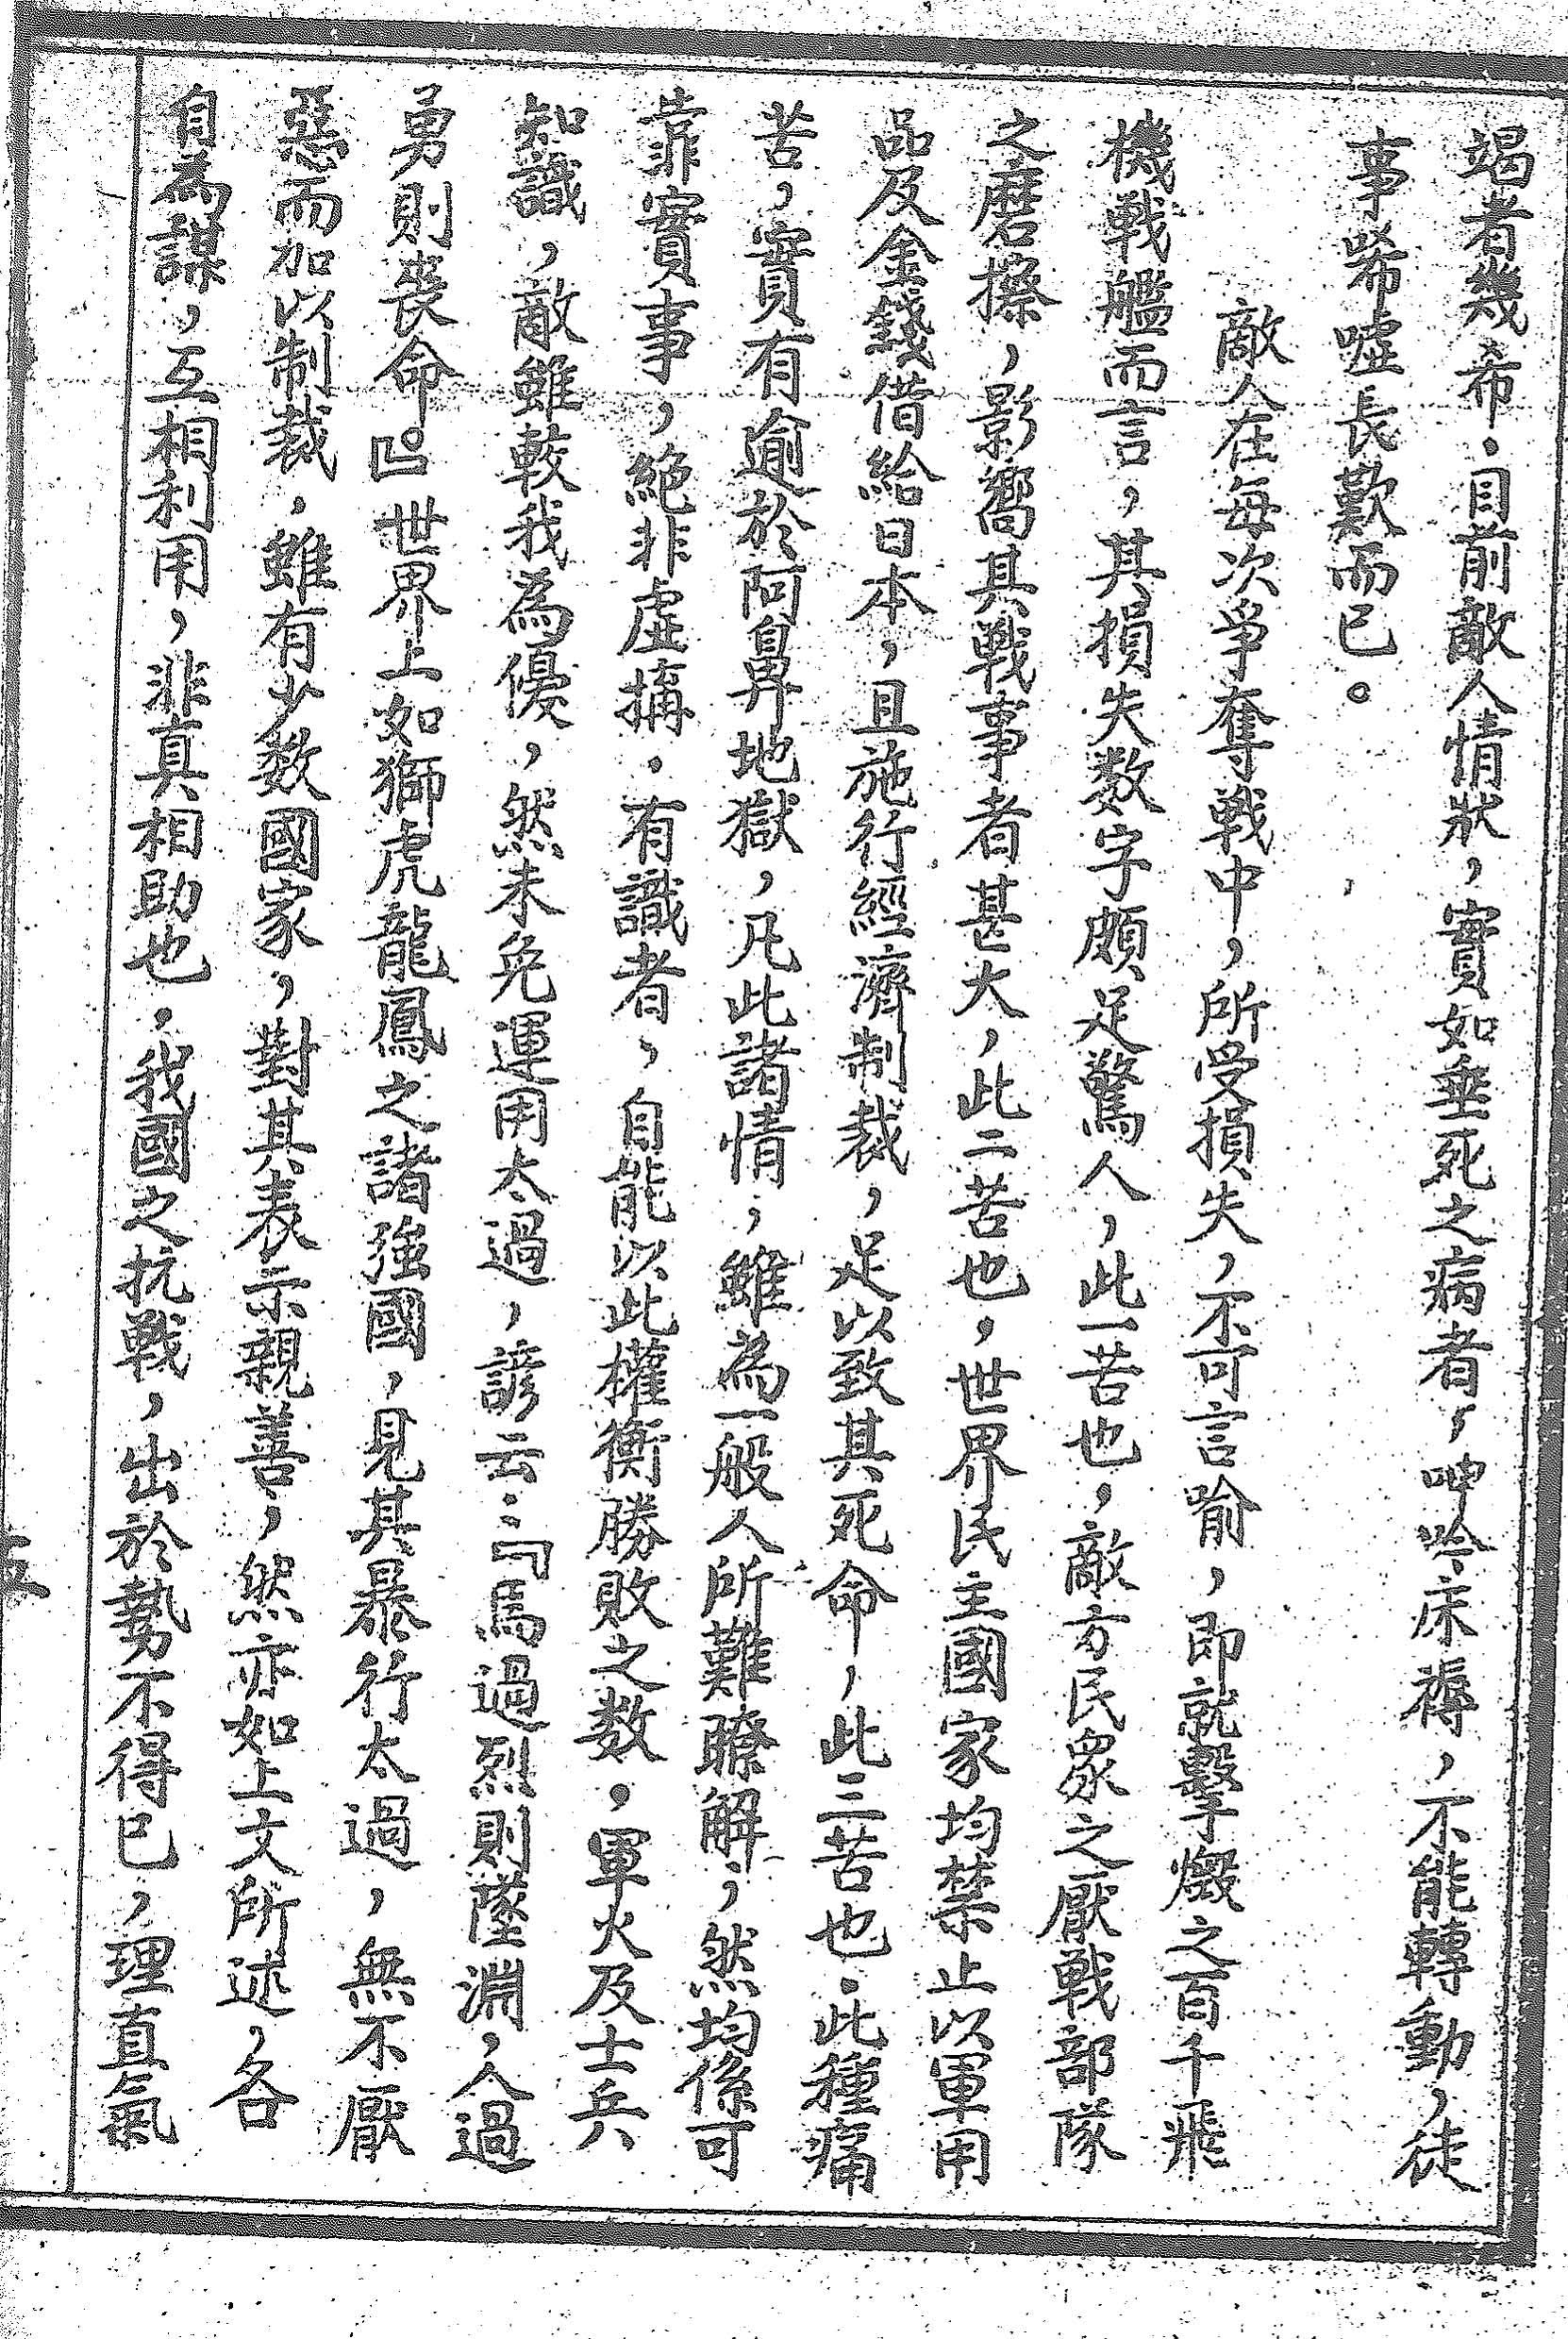 竭者幾希．目前敵人情狀，實如垂死之病者，呻吟床褥，不能轉動，徒
事唏噓長歎而已。
敵人在每次爭奪戰中，所受損失，不可言喻，即就擊燬之百千飛
機戰艦而言，其損失数字頗足驚人，此一苦也，敵方民眾之厭戰部隊
之磨擦，影響其戰事者甚大，此二苦也，世界民主國家均禁止以軍用
品及金錢借給日本，且施行經濟制裁，足以致其死命，此三苦也．此種痛
苦，實有逾於阿鼻地獄，凡此諸情，雖為一般人所難瞭解，然均係可
靠實事，絕非虛搆．有識者，自能以此權衡勝敗之数，軍火及士兵
知識，敵雖較我為優，然未免運用太過，諺云：『馬過烈則墜淵，人過
勇則喪命。』世界上如獅虎龍鳳之諸強國，見其暴行太過，無不厭
惡而加以制裁，雖有少数國家，對其表示親善，然亦如上文所述，各
自為謀，互相利用，非真相助也，我國之抗戰，出於勢不得已，理直氣
五